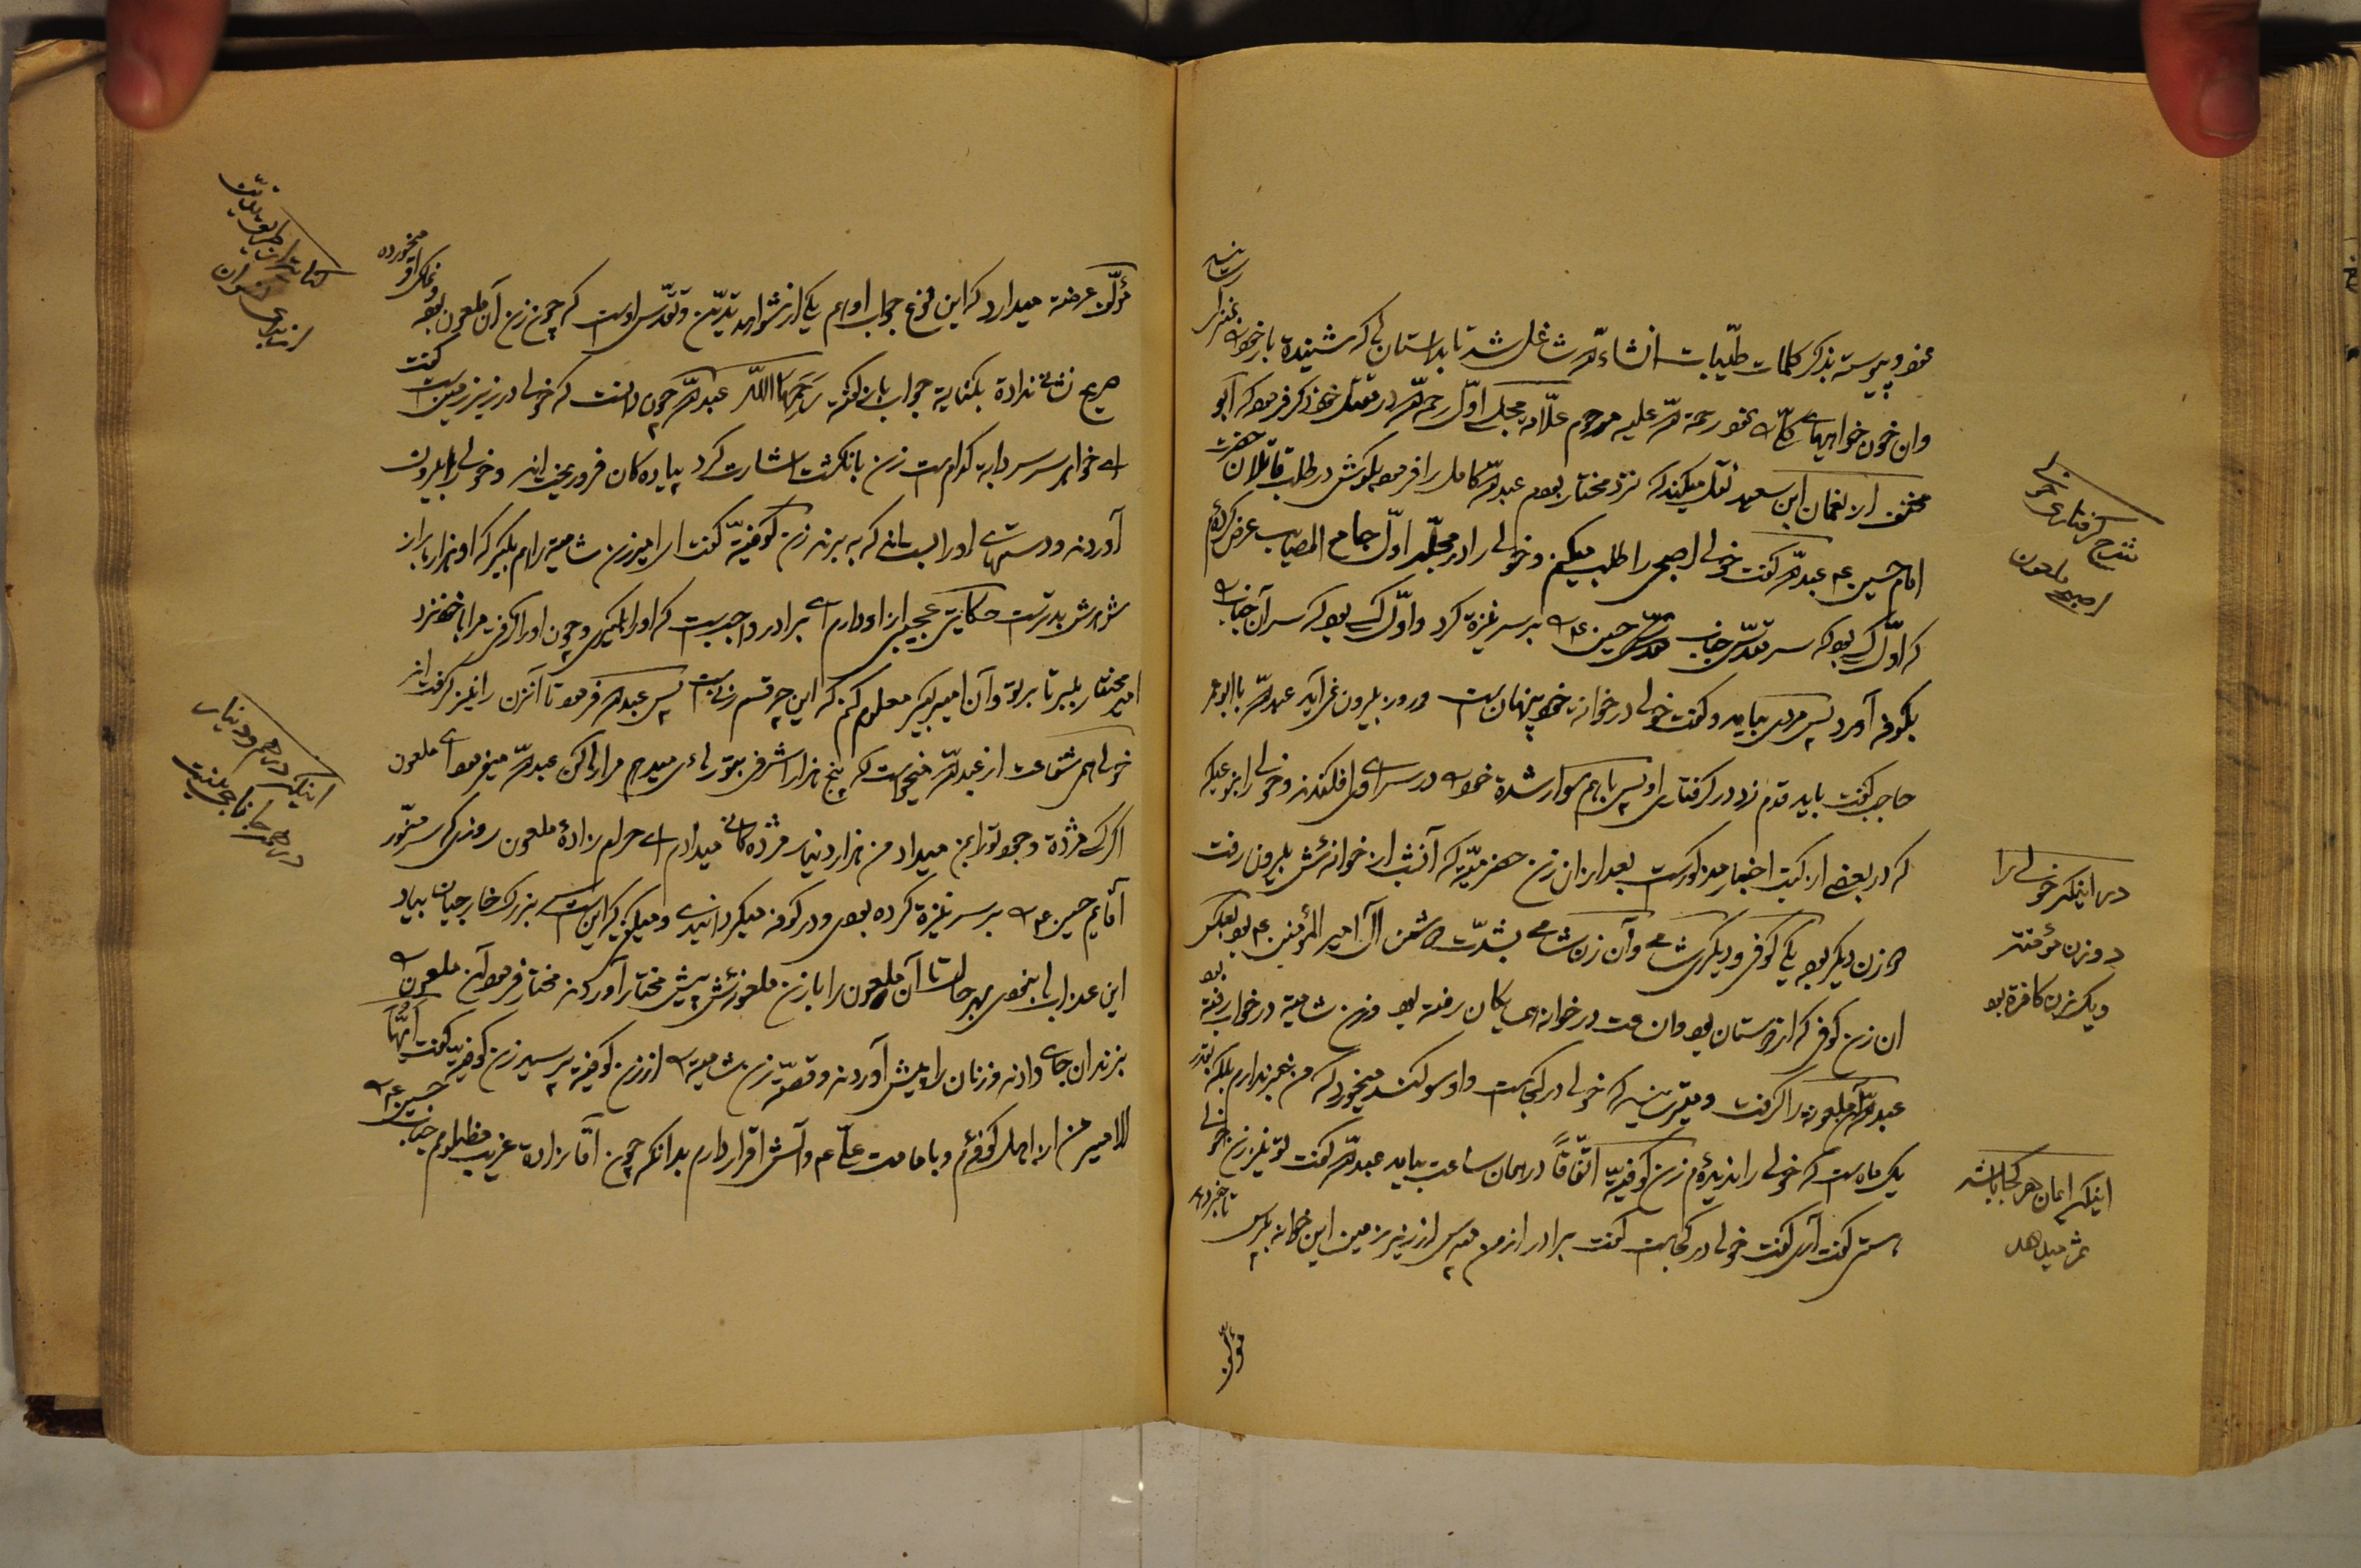 نمود و پیوسته بذکر کلمات طیّبات انشاءالله شاغل شد تا بداستانی که شنیده باز خواهد
وان خون خواهیهای بخور رحمة الله علیه مرحوم علّامه مجلسی اوّل رحمه الله در مقتل خود ذکر فرموده که ابو
مخنف از نعمان ابن سعید نقل میکند که نزد مختار بودم عبدالله کامل را فرمود بکوش در طلب قاتلان حضرت
امام حسین ع عبدالله گفت خولی اصبحی را طلب میکنم و خولی را در مجلّد اوّل جامع المصایب عرض کرده‌ام
که اوّل کسی بود که سر مقدّس جناب حسین ع بر سر نیزه کرد و اوّل کسی بود که سر آن جناب
بکوفه آورد پس مردی بیامد و گفت خولی در خوانه خود پنهان است و روز بیرون نمی‌آید عبدالله با ابو عمر
حاجب گفت باید قدم زد در گرفتاری او پس با هم سوار شده خود را در سرای او افکندند و خولی را بنوعیکه
که در بعضی از کتب اخبار مذکور است بعد از ان زن حضرمیّه که آنشب از خوانه‌ئش بیرون رفت
دو زن دیگر بود یکی کوفی و دیگری شامی و آن زن شامی بشدّت دشمن آل امیر المؤمنین ع بود بعکس
ان زن کوفی که از دوستان بود وان وقت در خوانه همسایگان رفته بود و زن شامیه در خواب رفته بود
عبدالله آن ملعونه را گرفت و میپرسید که خولی در کجا است و او سوگند میخورد که من خبر ندارم بلکه بقدر
یک ماه است که خولی را ندیده‌ام زن کوفیه اتّفاقاً در همان ساعت بیامد عبدالله گفت تو نیز زن خولی
هستی گفت آری گفت خولی در کجا است گفت برادر از من مپرس از زیر زمین این خوانه بپرس تا خبر دهد
مؤلّف
شرح گرفتاری خولی
اصبحی ملعون
در اینکه خولی را
دو زن مؤمنه
و یک زن کافره بود
اینکه ایمان هر کجا باشد
ثمر میدهد
مؤلّف عرضه میدارد که این نوع جواب او هم یکی از شواهد تدیّن و تقدّس اوست که چون زن آن ملعون بوده و نمک او میخورده
صریح نشان نداده بکنایه جواب بان گفته رَحِمَهَا اللّه عبدالله چون دانست که خولی در زیر زمین است گفت
ای خواهر سر سردابه کدام است زن بانگشت اشارت کرد پیاده‌کان فرو ریختند و خولی را بیرون
آوردند و دستهای او را بستند که به برند زن کوفیّه گفت ای امیر زن شامیه را هم بگیر که او هزار بار از
شوهرش بدتر است حکایتی عجیبی از او دارم ای برادر واجب است که او را بگیری و چون او را گرفتی مرا با خود نزد
امیر مختار ببر تا بر تو و آن امیر کبیر معلوم کنم که این چه قسم زنیست پس عبدالله فرمود تا آنزن را نیز گرفتند
خولی هی شفاعت از عبدالله میخواست که پنج هزار اشرفی بتو رسانی میدهم مرا رها کن عبدالله میفرمود ای ملعون
اگر کسی مژده وجود تو را بمن میداد من هزار دینار مژده‌گانی میدادم ای حرام زاده ملعون روزی که سر منوّر
آقایم حسین ع را بر سر نیزه کرده بودی و در کوفه میگردانیدی و میگفتی که این است سر بزرک خارجیان بیاد
این عذاب را بنمودی بهر حال تا آن ملعون را با زن ملعونه‌ئش پیش مختار آوردند مختار فرمود آن ملعون را
بزندان جای دادند و زنان را پیش آوردند و قصّه زن شامیه را از زن کوفیه پرسید زن کوفیه گفت ایّها
الامیر من از اهل کوفه‌ئم و بامامت علی ع و آلش اقرار دارم بدانکه چون آقا زاده غریب مظلومم جناب حسین ع را
اینکه درهم و دینار